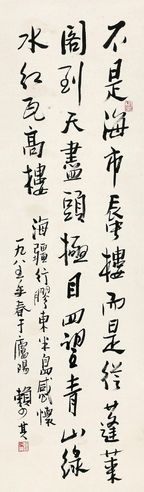 不是海市蜃樓而是從蓬萊
閣到天盡頭極目四望青山綠
水紅瓦高樓
海疆行膠東半島感懷
一九八五年春于廬陽 賴少其